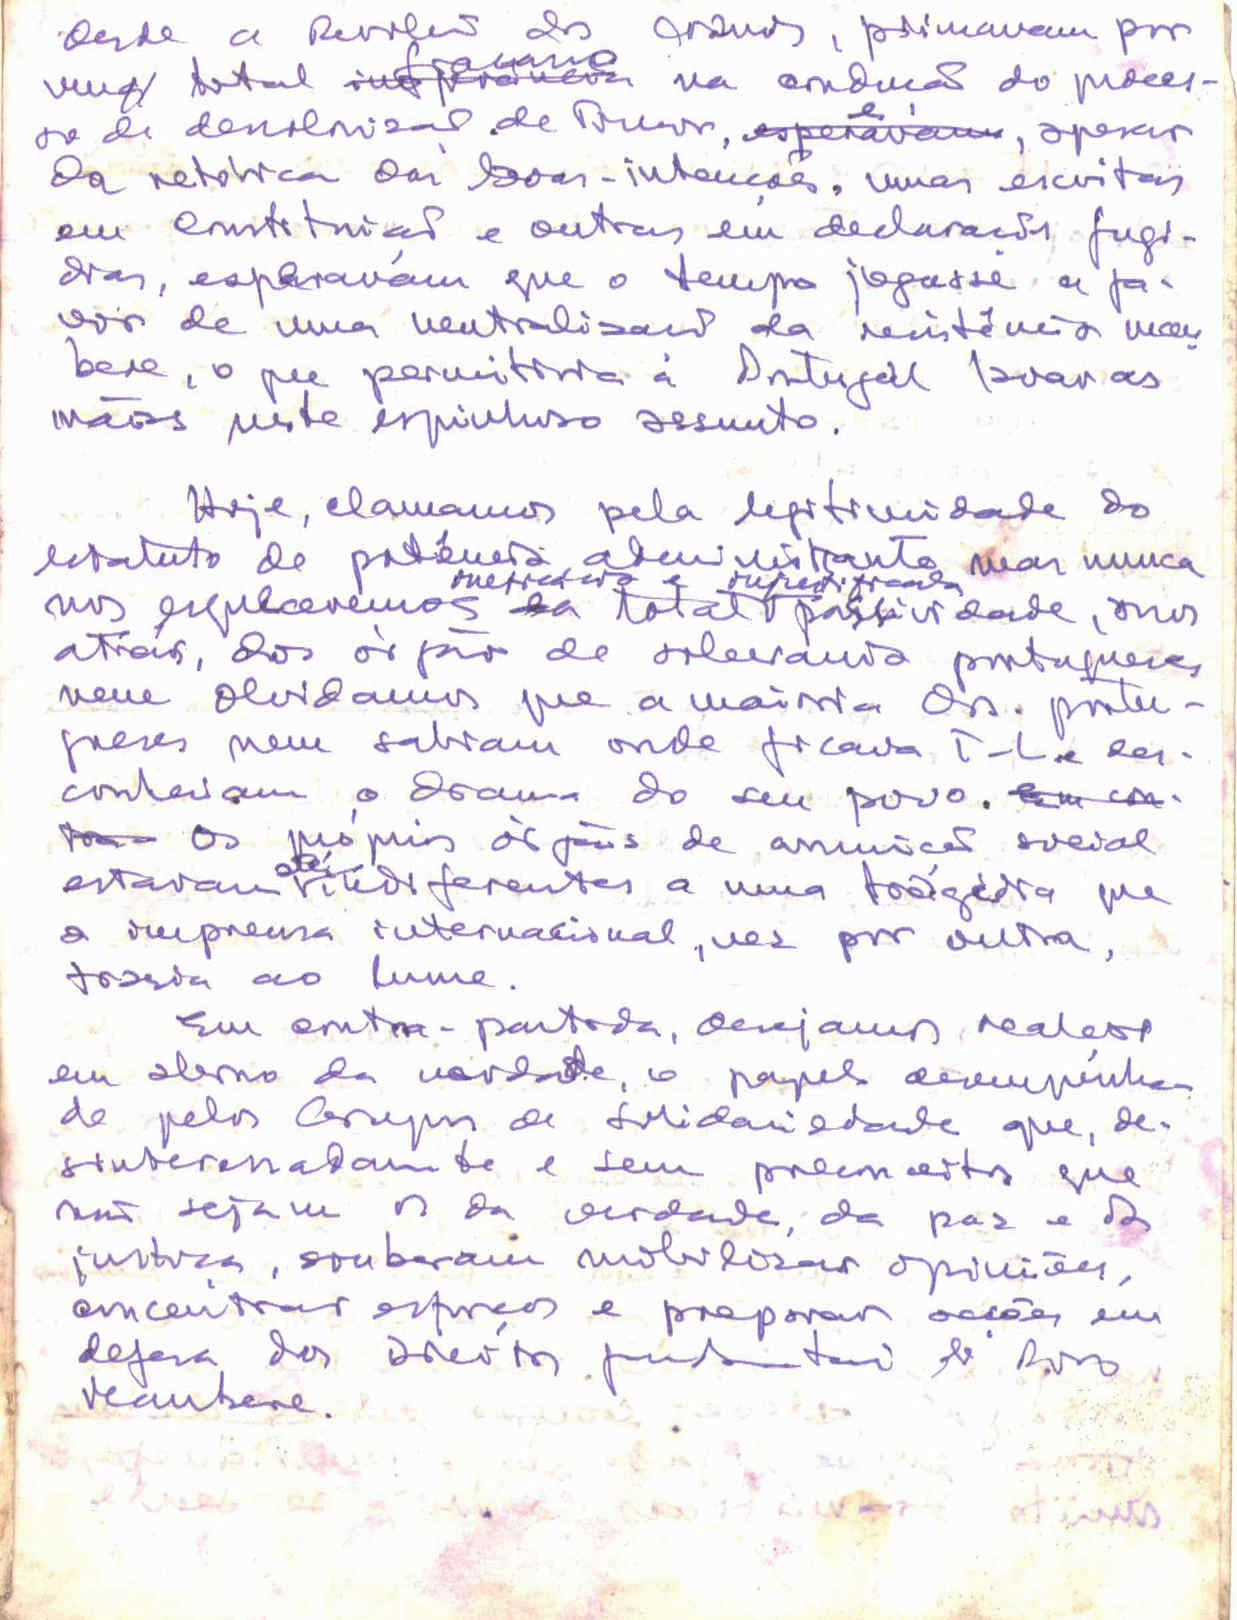 desde a Revolução dos Cravos, primavam por
um total fracasso na condução do proces-
so de descolonização de Timor, e, apesar
da retórica das boas-intenções, umas escritas
em Constituição e outras em declarações fugi-
dias, esperavam que o tempo jogasse a fa-
vor de uma neutralização da resistência mau
bere, o que permitiria à Portugal lavar as
mãos neste espinhoso assunto.
Hoje, clamamos pela legitimidade do
estatuto de potência administrante mas nunca
nos esqueceremos a total inetricia e injustificada passividade, anos
atrás, dos órgãos de soberania portugueses
nem olvidamos que a maioria dos portu-
gueses nem sabiam onde ficava T-L e des-
conheciam o drama do seu povo. Em con-
tra Os próprios órgãos de comunicação social
estavam até indiferentes a uma tragédia que
a imprensa internacional, vez por outra,
trazia ao lume.
Em contra-partida, desejamos realçar
em abono da verdade, o papel desempenha-
do pelos Grupos de Solidariedade que, de-
sinteressadamente e sem preconceitos que
não sejam os da verdade, da paz e da
justiça, souberam mobilizar opiniões,
concentrar esforços e preparar acções em
defesa dos direitos fundamentais do Povo
Maubere.